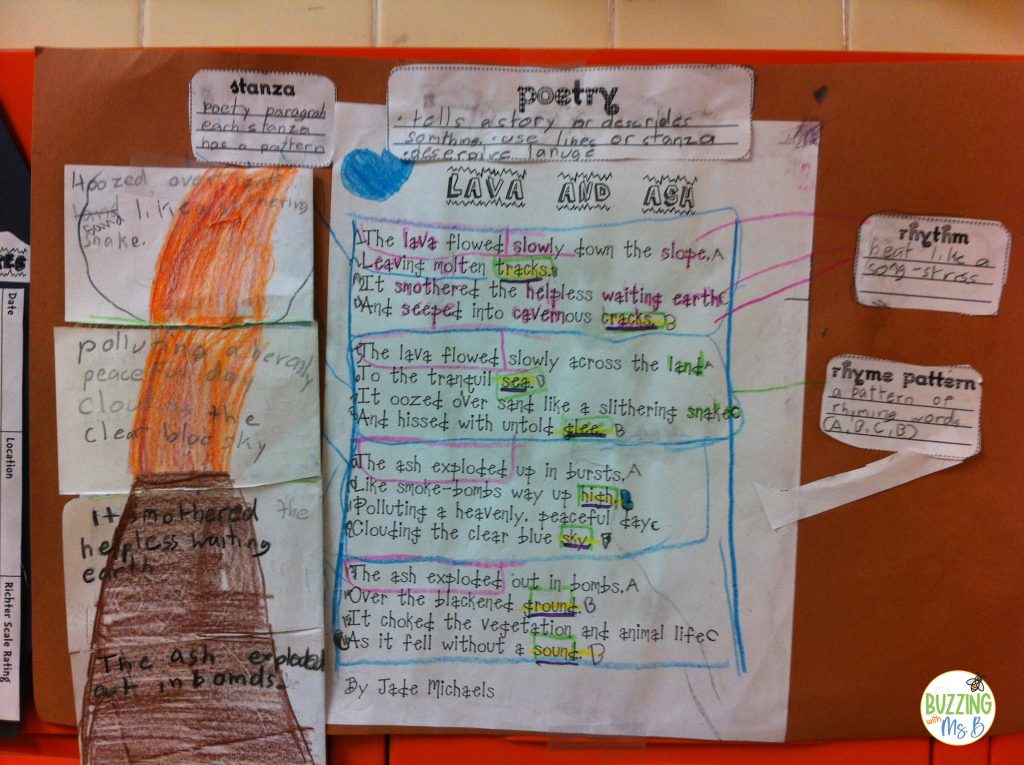 stanza
Poety paragrah
each stanza
has a pattern
poetry
• tells a story or describes
somthing • use lines or stanza
• descripive lanuge
LAVA AND ASH
The lava flowed slowly down the slope, A
Leaving molten tracks. B
It smothered the helpless waiting earth C
And seeped into cavernous cracks. B
The lava flowed slowly across the land A
To the tranquil sea. B
It oozed over sand like a slithering snake C
And hissed with untold glee. B
The ash exploded up in bursts. A
Like smoke-bombs way up high, B
Polluting a heavenly, peaceful day C
Clouding the clear blue sky. B
The ash exploded out in bombs. A
Over the blackened ground. B
It choked the vegetation and animal life C
As it fell without a sound. B
By Jade Michaels
rhythm
beat like a
song-stress
rhyme pattern
a pattern of
rhyming words
(A, B, C, B)
oozed over
like
snake.
polluting a heranly
peaceful day
Clouding the
clear blue sky
It smothered the
helpless waiting
earth
The ash exploded
out in bomds.
Date
Location
Richter Scale Rating
BUZZING
with
Ms. B